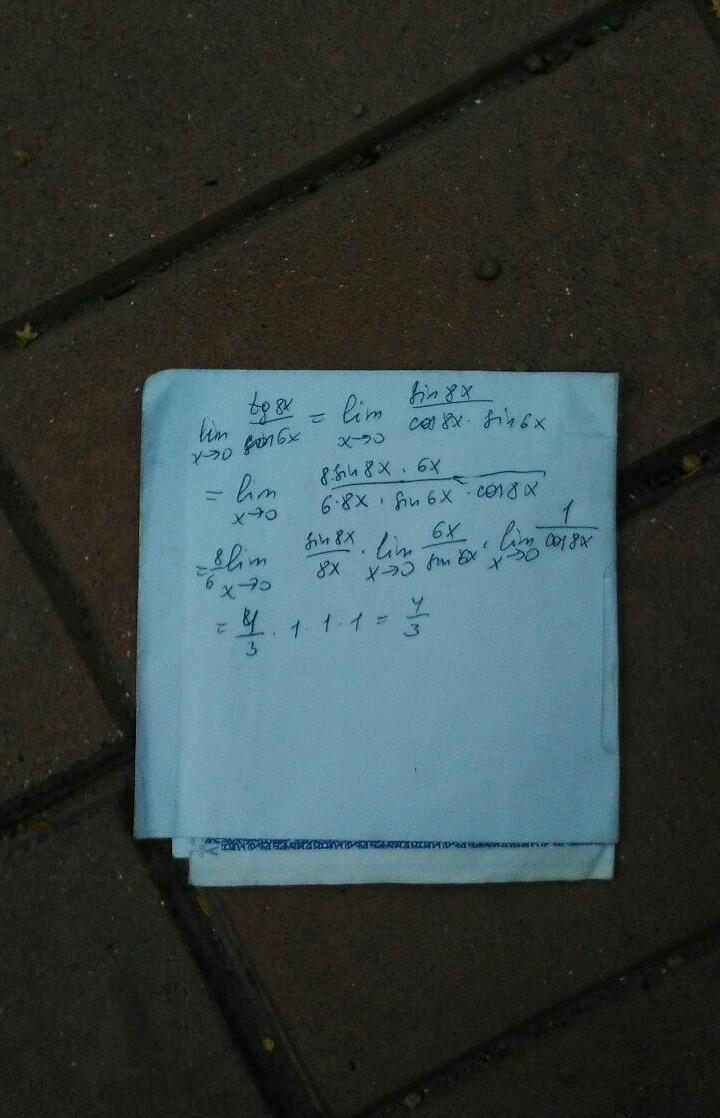 lim x→0 tg8x / sin6x = lim x→0 sin8x / cos8x · sin6x
= lim x→0 8·sin8x · 6x / 6·8x · sin6x · cos8x
= 8/6 lim x→0 sin8x / 8x · lim x→0 6x / sin6x · lim x→0 1 / cos8x
= 4/3 · 1 · 1 · 1 = 4/3